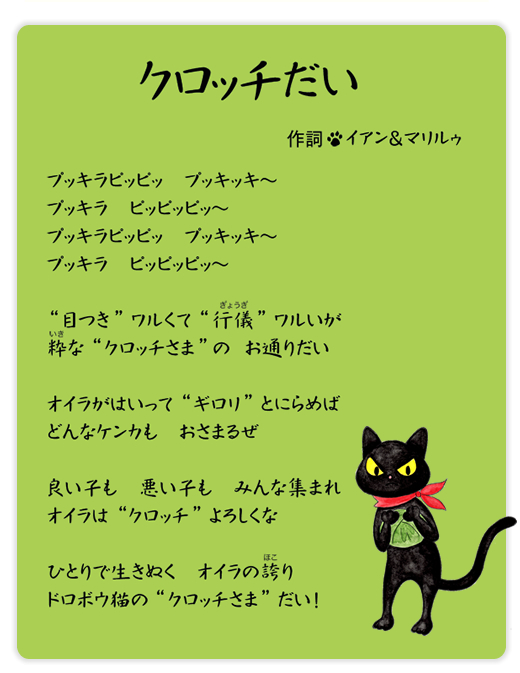 クロッチだい
作詞🐾イアン&マリルゥ
ブッキラビッビッ　ブッキッキ〜
ブッキラ　ビッビッビッ〜
ブッキラビッビッ　ブッキッキ〜
ブッキラ　ビッビッビッ〜
“目つき”ワルくて“行儀”ワルいが
粋な“クロッチさま”の　お通りだい
オイラがはいって“ギロリ”とにらめば
どんなケンカも　おさまるぜ
良い子も　悪い子も　みんな集まれ
オイラは“クロッチ”よろしくな
ひとりで生きぬく　オイラの誇り
ドロボウ猫の“クロッチさま”だい!